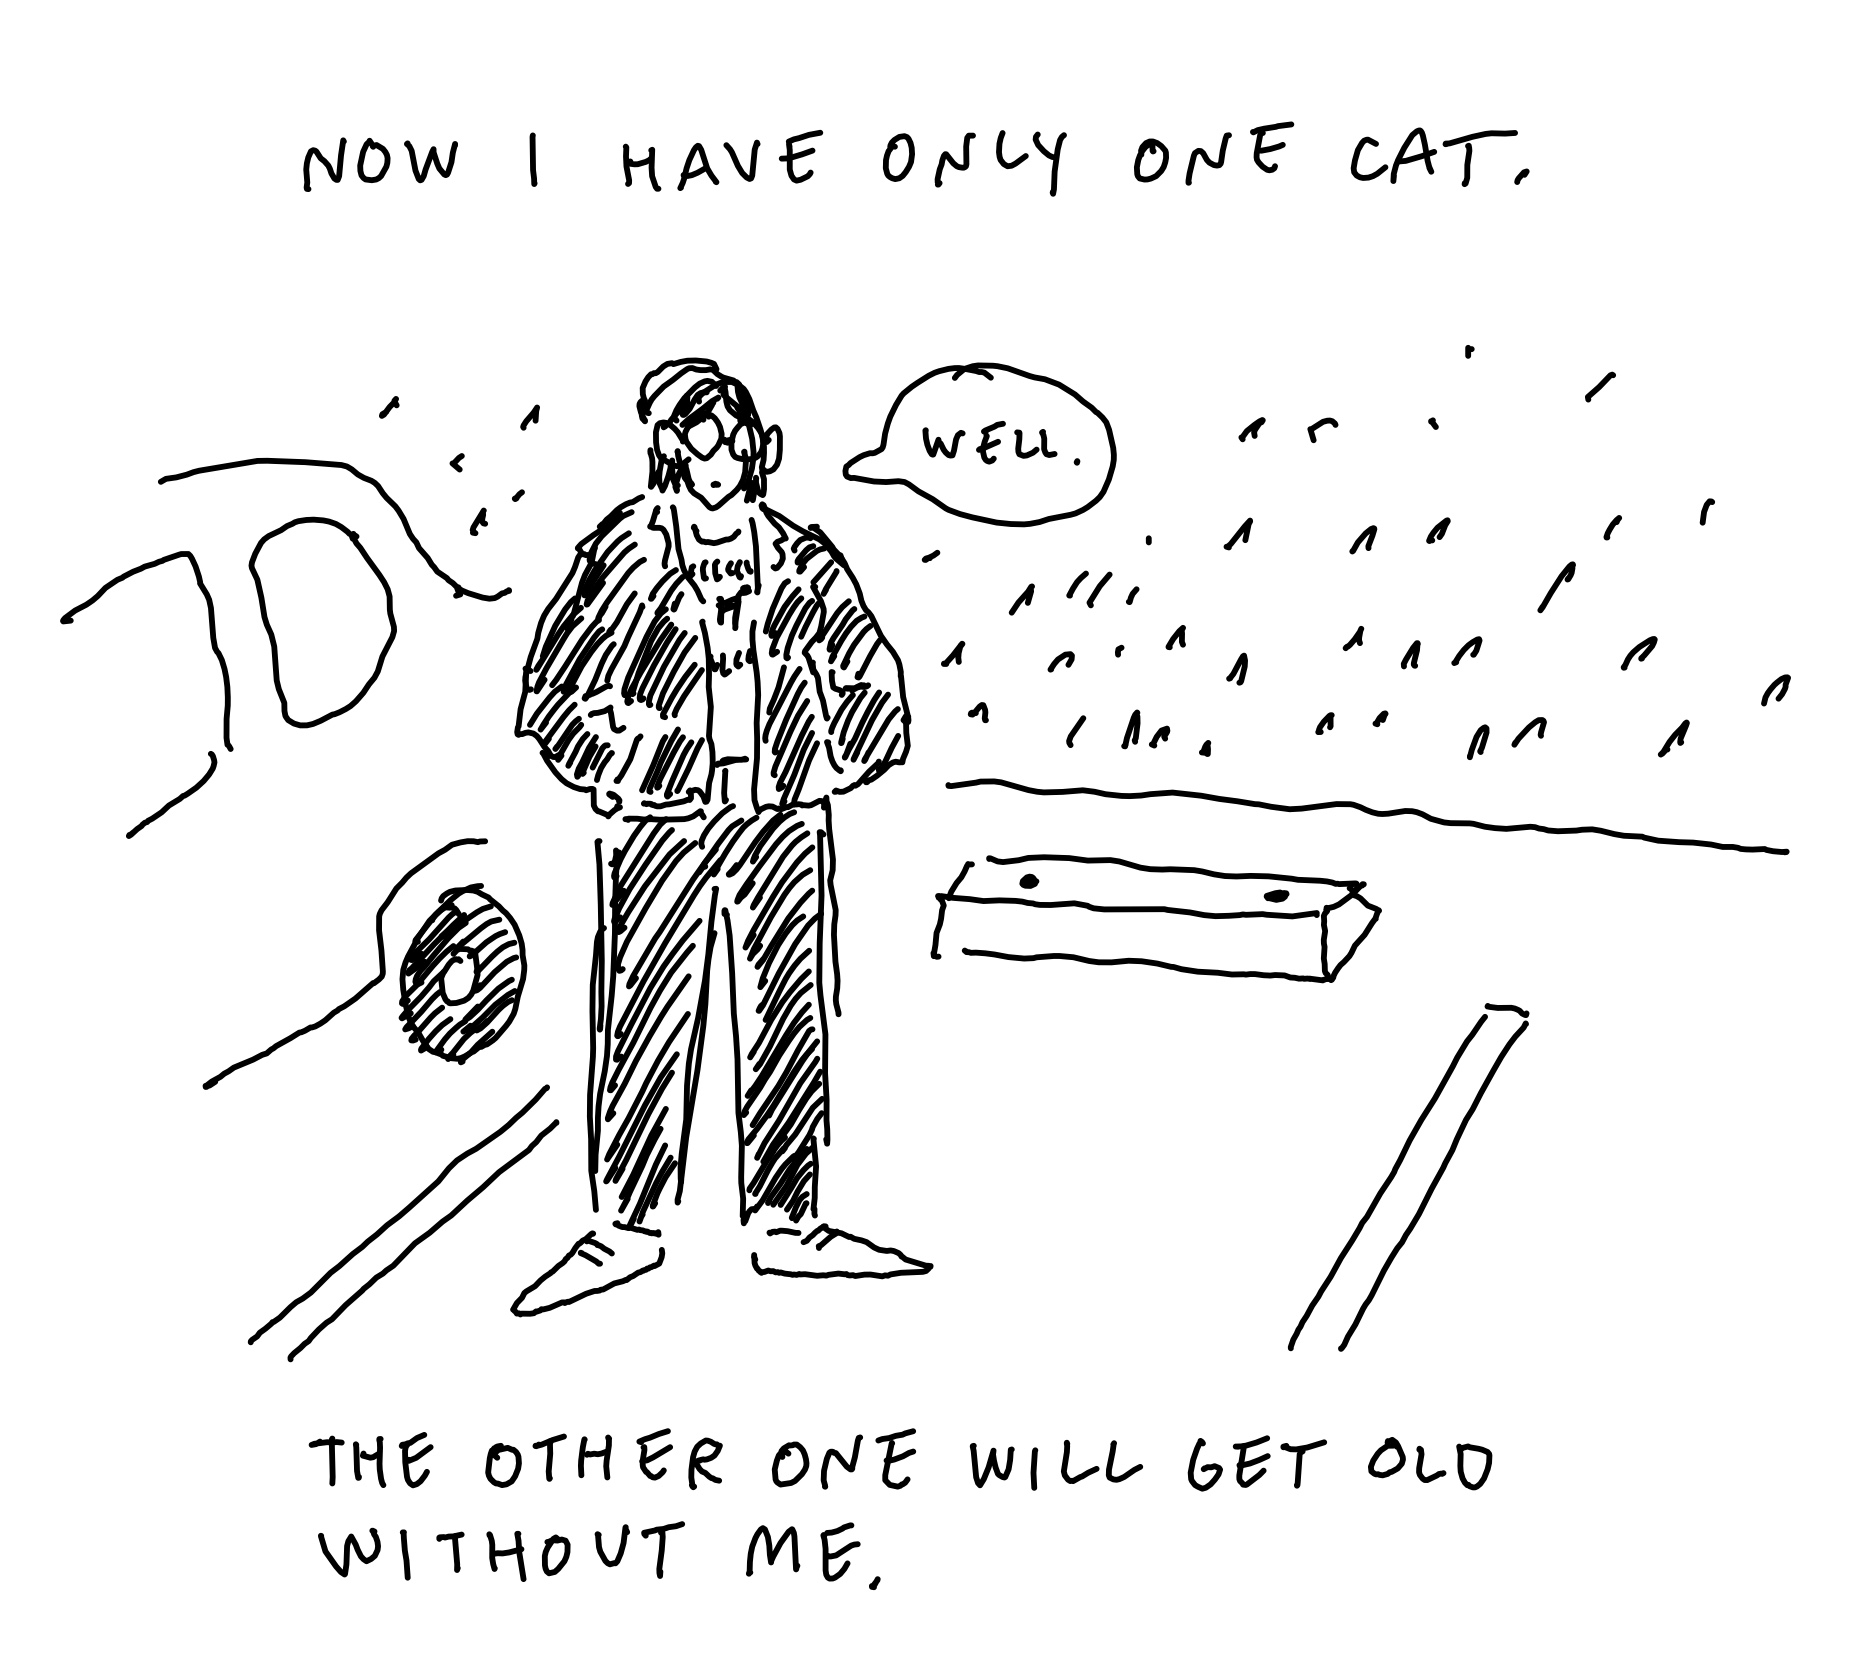 NOW I HAVE ONLY ONE CAT.
WELL.
THE OTHER ONE WILL GET OLD
WITHOUT ME.